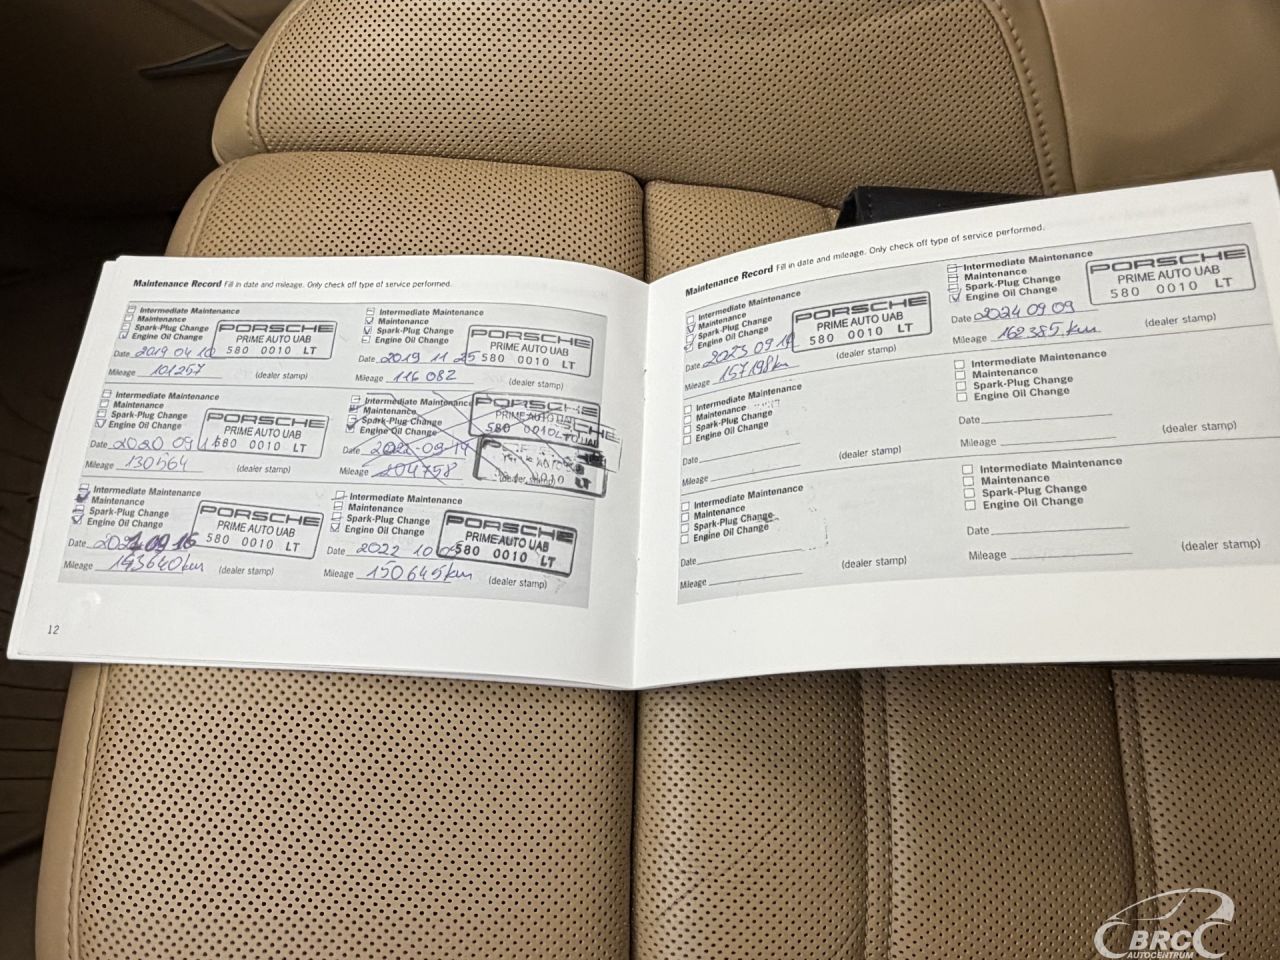 Maintenance Record Fill in date and mileage. Only check off type of service performed.
Intermediate Maintenance
Maintenance
Spark-Plug Change
Engine Oil Change
PORSCHE
PRIME AUTO UAB
580 0010 LT
Date 2019 04 10
Mileage 101257
(dealer stamp)
Intermediate Maintenance
Maintenance
Spark-Plug Change
Engine Oil Change
PORSCHE
PRIME AUTO UAB
580 0010 LT
Date 2019 11 25
Mileage 116 082
(dealer stamp)
Intermediate Maintenance
Maintenance
Spark-Plug Change
Engine Oil Change
PORSCHE
PRIME AUTO UAB
580 0010 LT
Date 2020 09
Mileage 130564
(dealer stamp)
Intermediate Maintenance
Maintenance
Spark-Plug Change
Engine Oil Change
PORSCHE
PRIME AUTO UAB
580 0010 LT
Date
Mileage 104758
(dealer stamp)
Intermediate Maintenance
Maintenance
Spark-Plug Change
Engine Oil Change
PORSCHE
PRIME AUTO UAB
580 0010 LT
Date 2021 09 16
Mileage 143640km
(dealer stamp)
Intermediate Maintenance
Maintenance
Spark-Plug Change
Engine Oil Change
PORSCHE
PRIME AUTO UAB
580 0010 LT
Date 2022 10
Mileage 150645km
(dealer stamp)
12
Maintenance Record Fill in date and mileage. Only check off type of service performed.
Intermediate Maintenance
Maintenance
Spark-Plug Change
Engine Oil Change
PORSCHE
PRIME AUTO UAB
580 0010 LT
Date 2023 09
Mileage 157198km
(dealer stamp)
Intermediate Maintenance
Maintenance
Spark-Plug Change
Engine Oil Change
PORSCHE
PRIME AUTO UAB
580 0010 LT
Date 2024 09 09
Mileage 162385 km
(dealer stamp)
Intermediate Maintenance
Maintenance
Spark-Plug Change
Engine Oil Change
Date
Mileage
(dealer stamp)
Intermediate Maintenance
Maintenance
Spark-Plug Change
Engine Oil Change
Date
Mileage
(dealer stamp)
Intermediate Maintenance
Maintenance
Spark-Plug Change
Engine Oil Change
Date
Mileage
(dealer stamp)
Intermediate Maintenance
Maintenance
Spark-Plug Change
Engine Oil Change
Date
Mileage
(dealer stamp)
BRC
AUTOCENTRUM